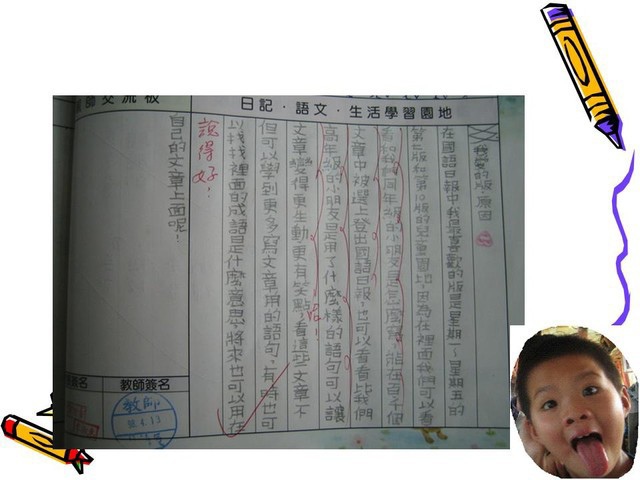 日記‧語文‧生活學習園地
師交流板
我愛的版,原因
在國語日報中我最喜歡的版是星期一~星期五的
第二版和第10版的兒童園地,因為在裡面我們可以看
看和我們同年級的小朋友是怎麼寫,能在百千個
文章中被選上登出國語日報,也可以看看比我們
高年級的小朋友是用了什麼樣的語句可以讓
文章變得更生動,更有笑點。看這些文章不
但可以學到更多寫文章用的語句,有時也可
以找找裡面的成語是什麼意思,將來也可以用在
自己的文章上面呢!
說得好!
簽名
教師簽名
教師
98.4.13